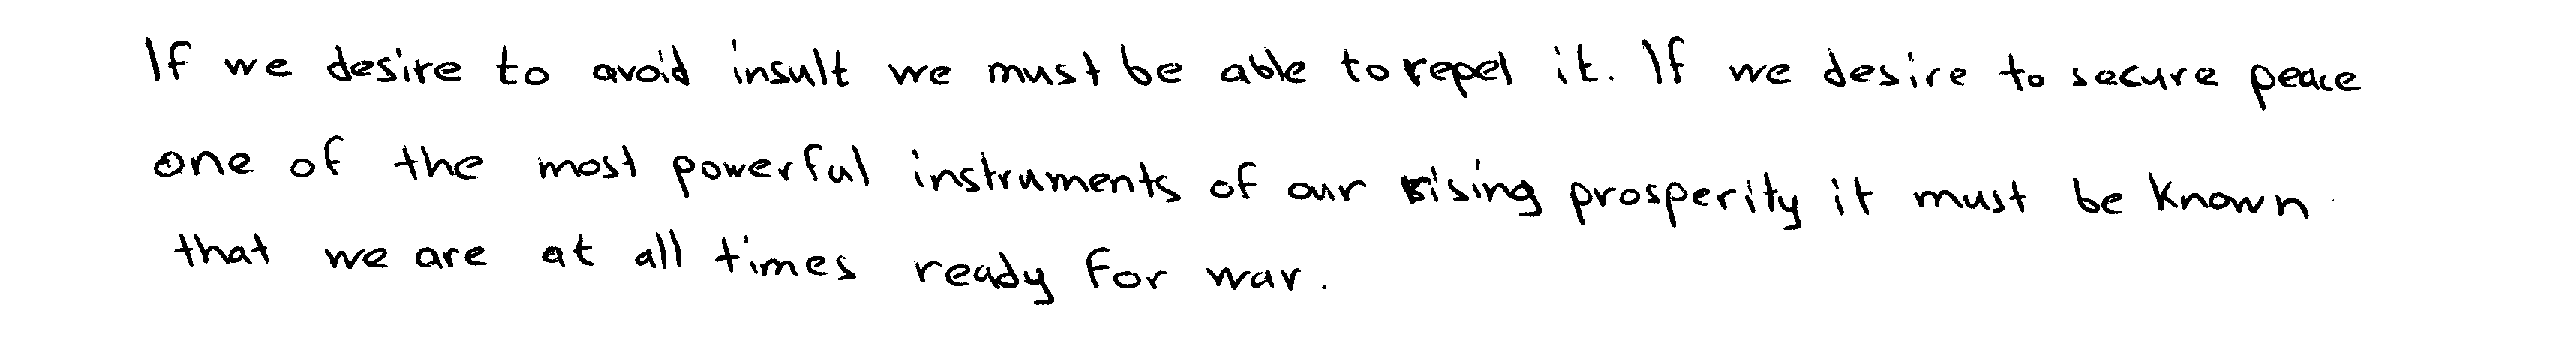 If we desire to avoid insult we must be able to repel it. If we desire to secure peace
one of the most powerful instruments of our rising prosperity it must be known
that we are at all times ready for war.